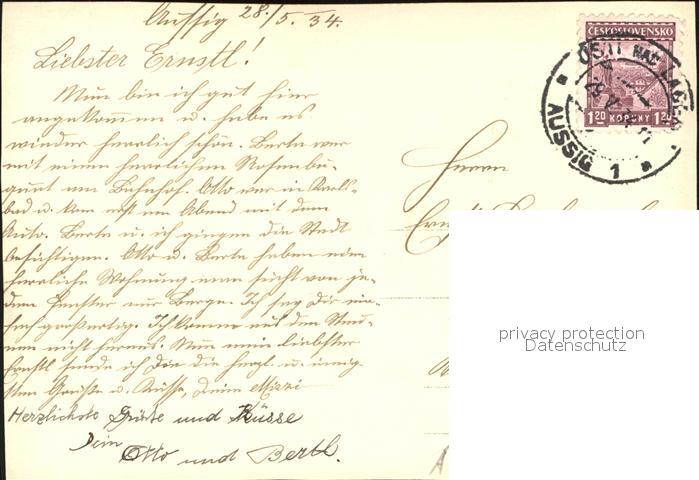 Aussig 28./5. 34.
Liebster Ernstl!
Nun bin ich gut hier
angekommen u. habe es
wieder herrlich schön. Berta war
mit einem herrlichen Rosenbu-
quet am Bahnhof. Otto war in Karls-
bad u. kam erst am Abend mit dem
Auto. Berta u. ich gingen die Stadt
besichtigen. Otto u. Berta haben eine
herrliche Wohnung man sieht von je-
dem Fenster nur Berge. Ich sag Dir ein-
fach großartig. Ich komme aus dem Stau-
nen nicht heraus. Nun mein liebster
Ernstl sende ich Dir die herzl. u. innig-
sten Grüße u. Küsse, Deine Mizzi
Herzlichste Grüße und Küsse
Dein
Otto und Bertl.
ČESKOSLOVENSKO
1.20 KORUNY 1.20
ÚSTÍ NAD LABEM
AUSSIG 1
Herrn
privacy protection
Datenschutz